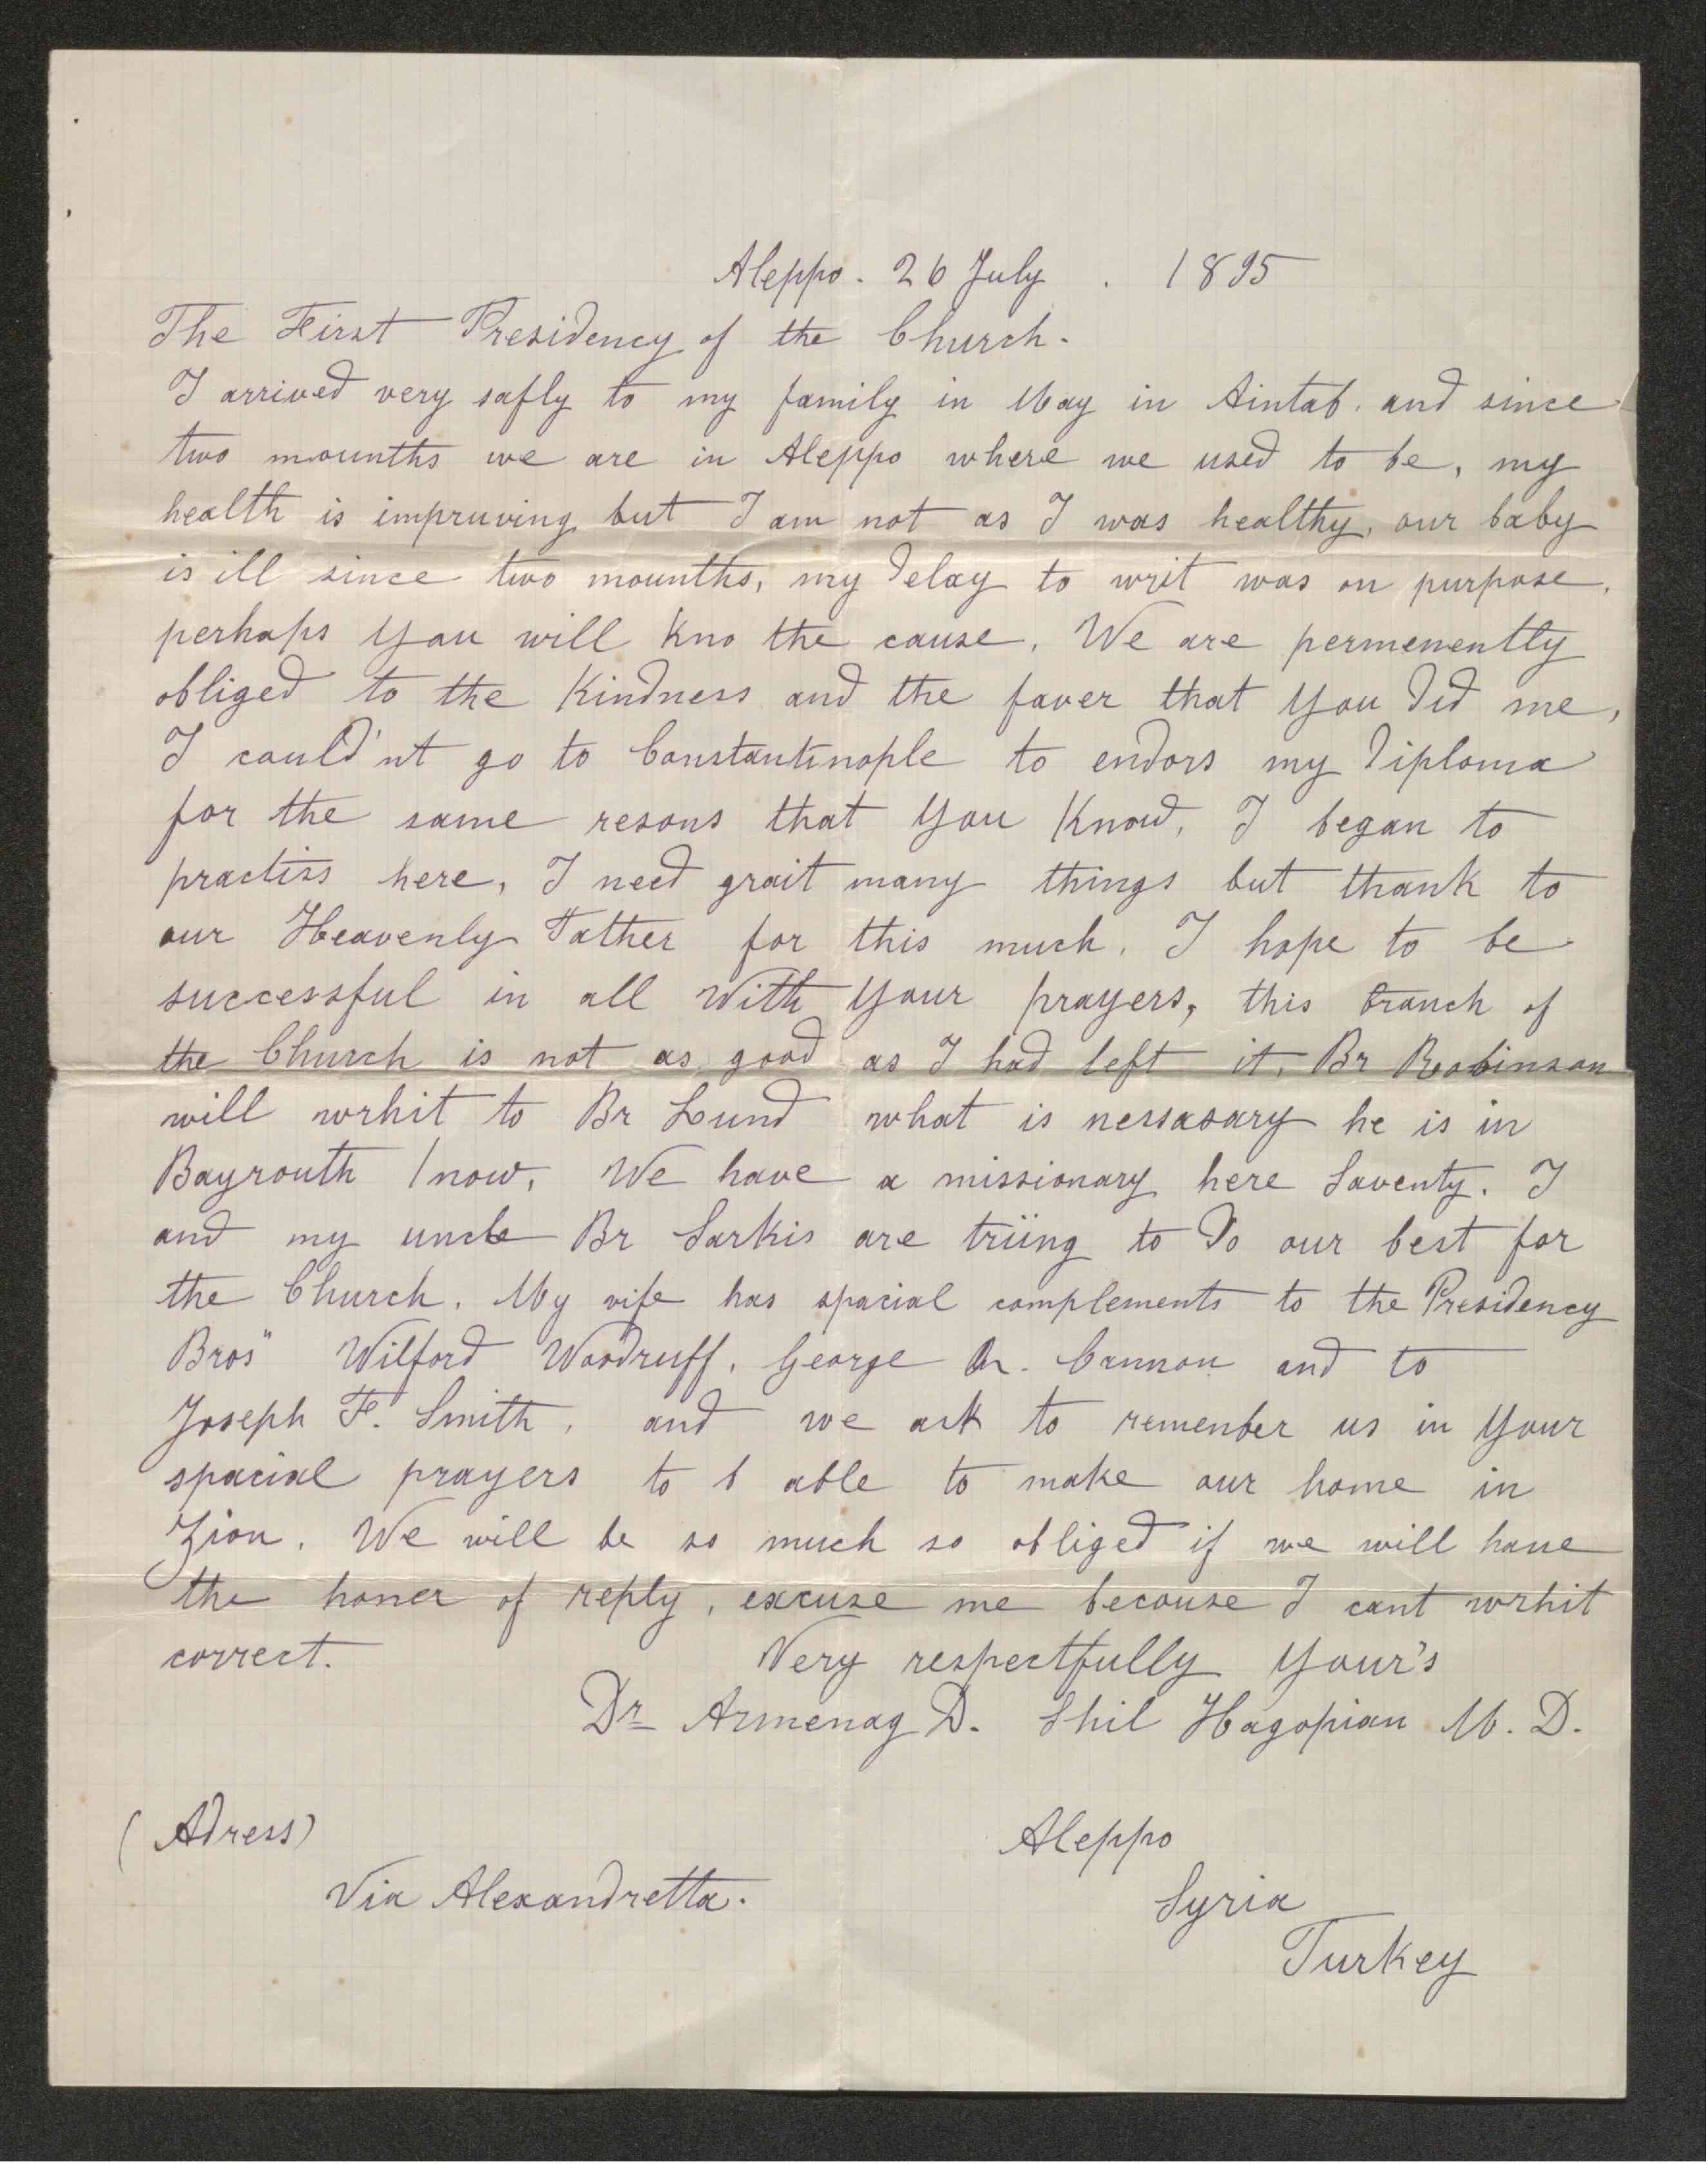 Aleppo. 26 July . 1895
The First Presidency of the Church.
I arrived very safly to my family in May in Aintab. and since
two mounths we are in Aleppo where we used to be, my
health is impruving but I am not as I was healthy, our baby
is ill since two mounths, my delay to writ was on purpose,
perhaps you will kno the cause. We are permenently
obliged to the kindness and the faver that you did me,
I could'nt go to Constantinople to endors my diploma
for the same resons that you know, I began to
practiss here, I need grait many things but thank to
our Heavenly Father for this much. I hope to be
successful in all with your prayers, this branch of
the Church is not as good as I had left it, Br Robinson
will wrhit to Br Lund what is nessasary he is in
Bayrouth now, We have a missionary here Saventy. I
and my uncle Br Sarkis are triing to do our best for
the Church. My vife has spacial complements to the Presidency
Bros" Wilford Woodruff, George Q. Cannon and to
Joseph F. Smith, and we ask to remenber us in your
spacial prayers to b able to make our home in
Zion. We will be so much so obliged if we will have
the honer of reply, excuse me becouse I cant wrhit
correct. Very respectfully your's
Dr Armenag D. Shil Hagopian M. D.
(Adress) Aleppo
Via Alexandretta. Syria
Turkey